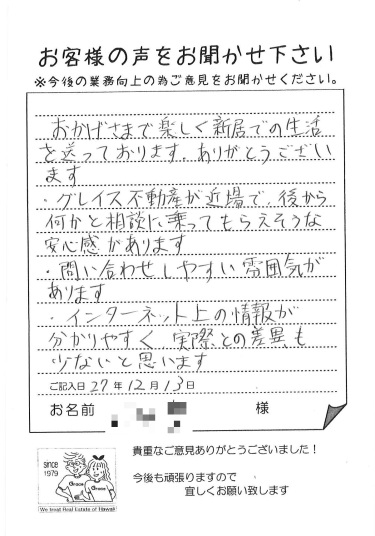 お客様の声をお聞かせ下さい
※今後の業務向上の為ご意見をお聞かせください。
おかげさまで楽しく新居での生活
を送っております。ありがとうござい
ます
・グレイス不動産が近場で、後から
何かと相談に乗ってもらえそうな
安心感があります
・問い合わせしやすい雰囲気が
あります
・インターネット上の情報が
分かりやすく、実際との差異も
少ないと思います
ご記入日 27年12月13日
お名前 様
貴重なご意見ありがとうございました！
今後も頑張りますので
宜しくお願い致します
since
1979
Grace
Grace
We treat Real Estate of Hawaii